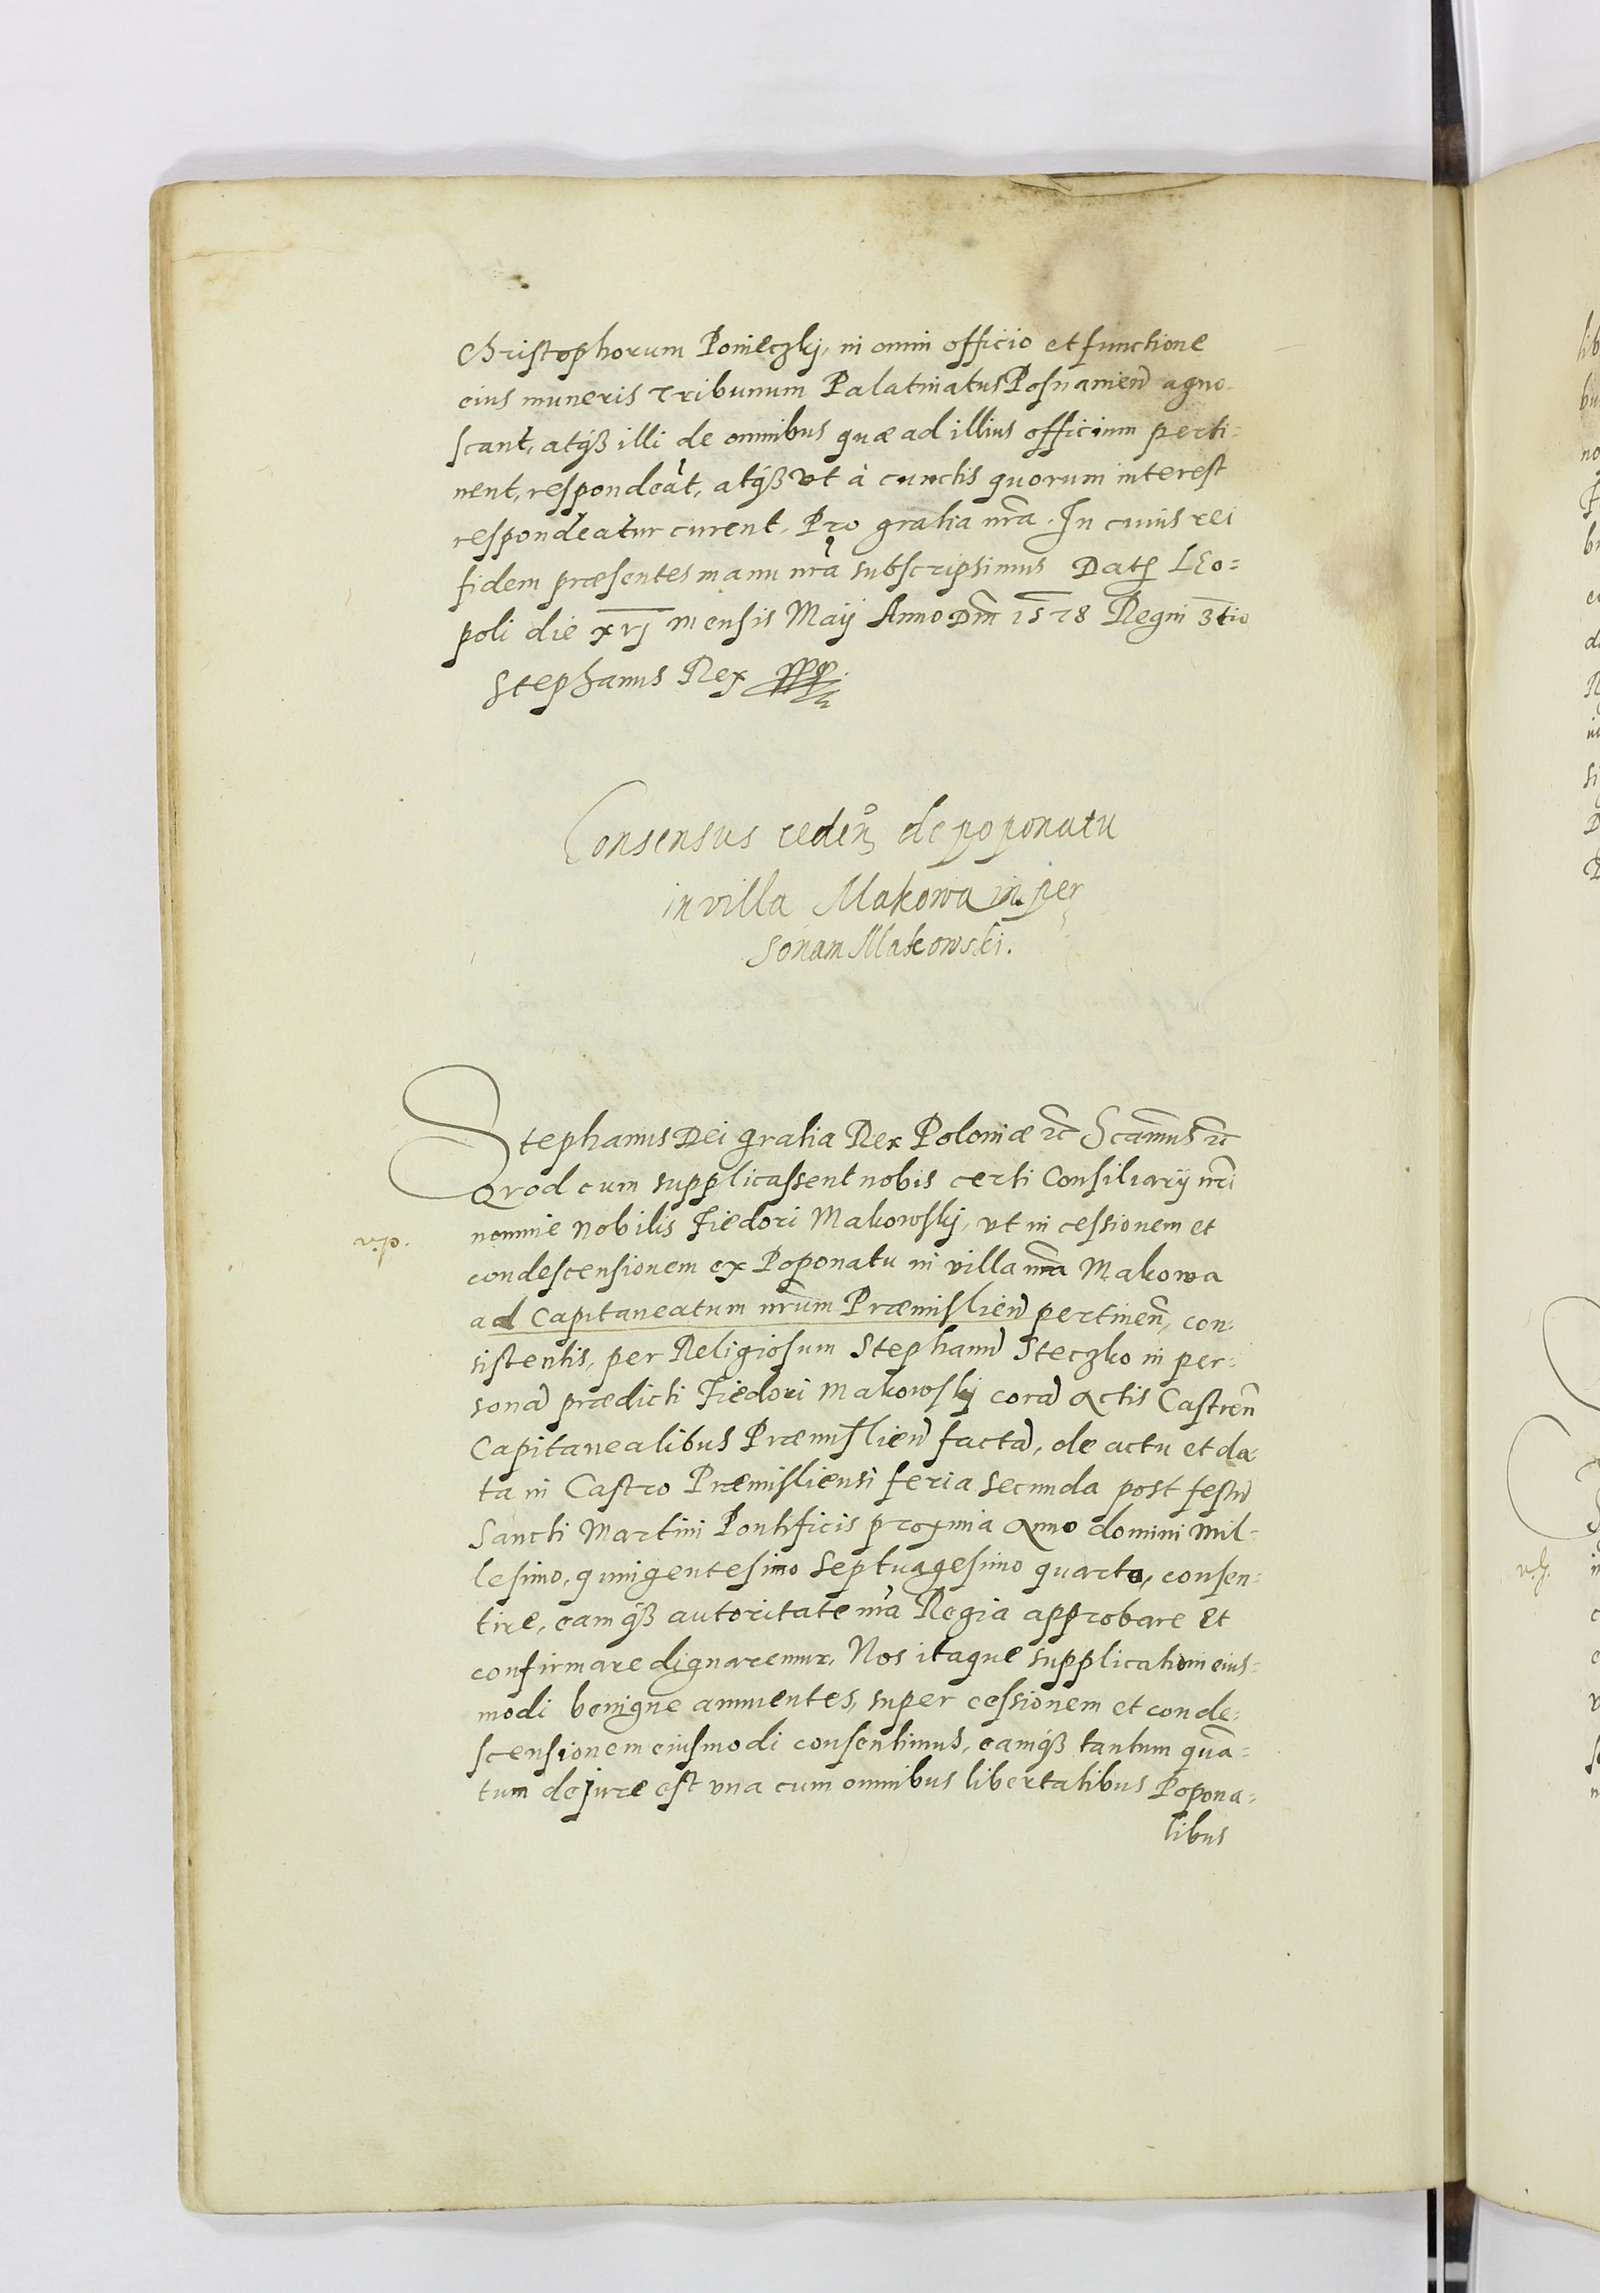 Christophorum Ponieczkj, in omni officio et functione
eius muneris Tribunum Palatinatus Posnanien̄ agno-
scant, atq̃ illi de omnibus quæ ad illius officium perti-
nent, respondeāt, atq̃ vt à cunctis quorum interest
respondeatur curent, Pro gratia nr̄a. In cuius rei
fidem præsentes manu nr̄a subscripsimus Dat̄ Leo=
poli die xvj mensis Maij Anno Dn̄i 1578 Regni 3tio
Stephanus Rex
Consensus cedēn̄ de poponatu
in villa Makowa in per
sonam Makowski.
Stephanus Dei gratia Rex Poloniæ ꝛc Sc̄amus ꝛc
Quod cum supplicassent nobis certi Consiliarij nr̄i
nomine Nobilis Fiedori Makowskj, vt in cessionem et
condescensionem ex Poponatu in villa nr̄a Makowa
ad Capitaneatum nr̄um Præmislien̄ pertinen̄, con-
sistentis, per Religiosum Stephanū Steczko in per-
sonā prædicti Fiedori Makowskj corā Actis Castren̄
Capitanealibus Præmislien̄ factā, de actu et da-
ta in Castro Præmisliensi feria secunda post festū
Sancti Martini Pontificis proxima Anno domini mil-
lesimo, quingentesimo septuagesimo quarto, consen-
tire, eamq̃ autoritate nr̄a Regia approbare et
confirmare dignaremur, Nos itaque supplicationi eius-
modi benigne annuentes, super cessionem et conde-
scensionem eiusmodi consentimus, eamq̃ tantum quā-
tum de jure est vna cum omnibus libertatibus Popona-
libus